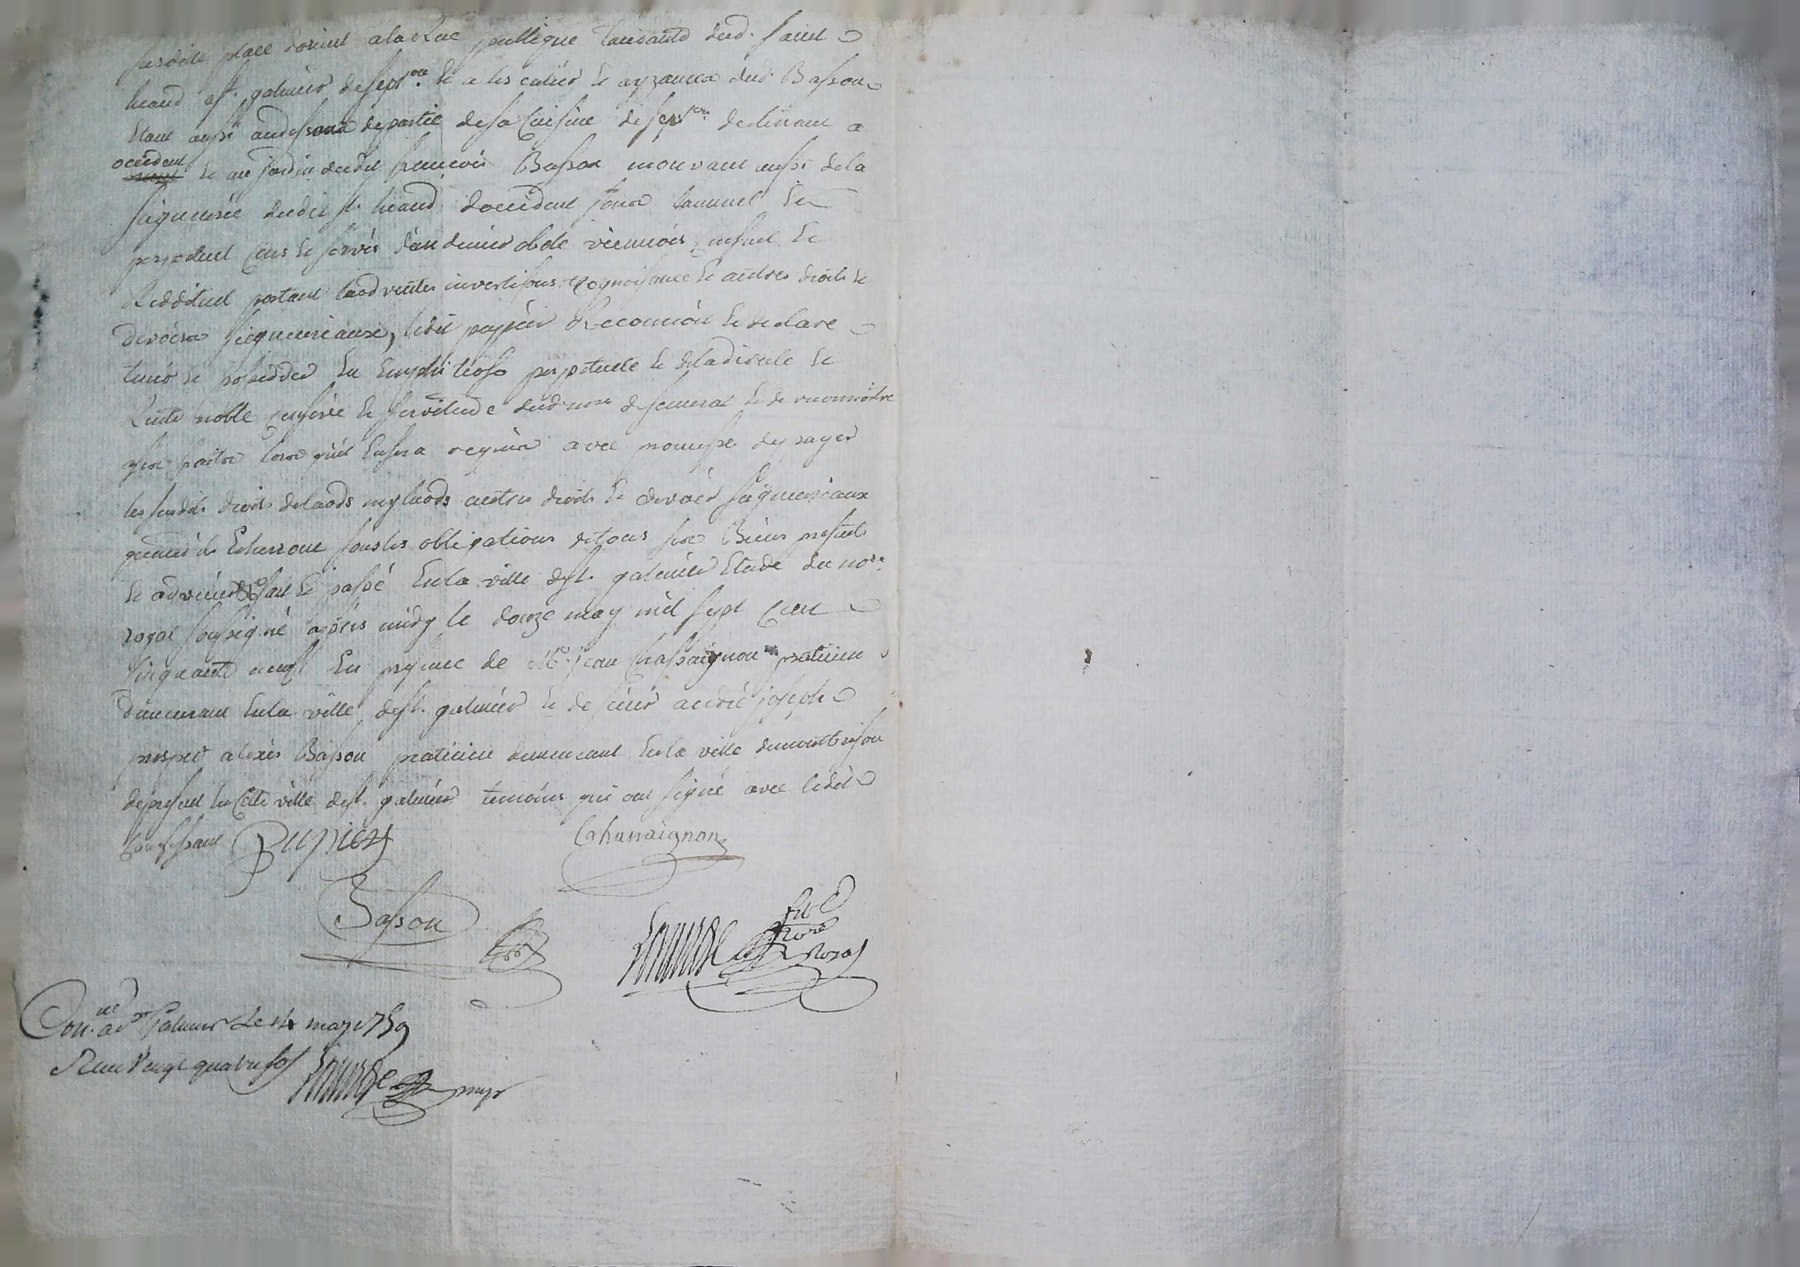 susdite place dorient a la Rue publique tandante dud. saint
heand a st. galmier de sep.on et a les calier et ayzances dud. Basson
etant aussi audessous de partie de sa Cuisine de sep.on declinant a
occident et au jardin dudit francois Basson mouvant aussi de la
seigneurie dudit st. heand doccident sous lannuel et
perpetuel cens et servis dun denier obole viennois Censuel et
Reddituel portant laods ventes investisons reconnoissance et autres droits et
devoirs seigneuriaux, ledit puppier Reconnoit et declare
tenir et posseder En Emphiteose perpetuelle et de la directe et
Rente noble censive et servitude dud. de et de reconnoitre
lors quil En sera requis avec promesse de payer
les susdits droits de laods mylaods autres droits et devoirs seigneuriaux
quand ils Echerront sous les obligations de tous ses Biens presents
et advenir fait et passé En la ville de st. galmier Etude du no.re
royal soussigné après midy le douze may mil sept Cent
Cinquante neuf En presence de M.e jean Chassaignon praticien
demeurant En la ville de st. galmier et de sieur andré joseph
prosper alexis Basson praticien demeurant En la ville de montbrison
de present En Cette ville de st. galmier temoins qui ont signé avec ledit
Confessant Pupier Cahassaignon
Basson
no.re Royal
Con.lé a st Galmier Le 14 may 1759
Recu Vingt quatre sols